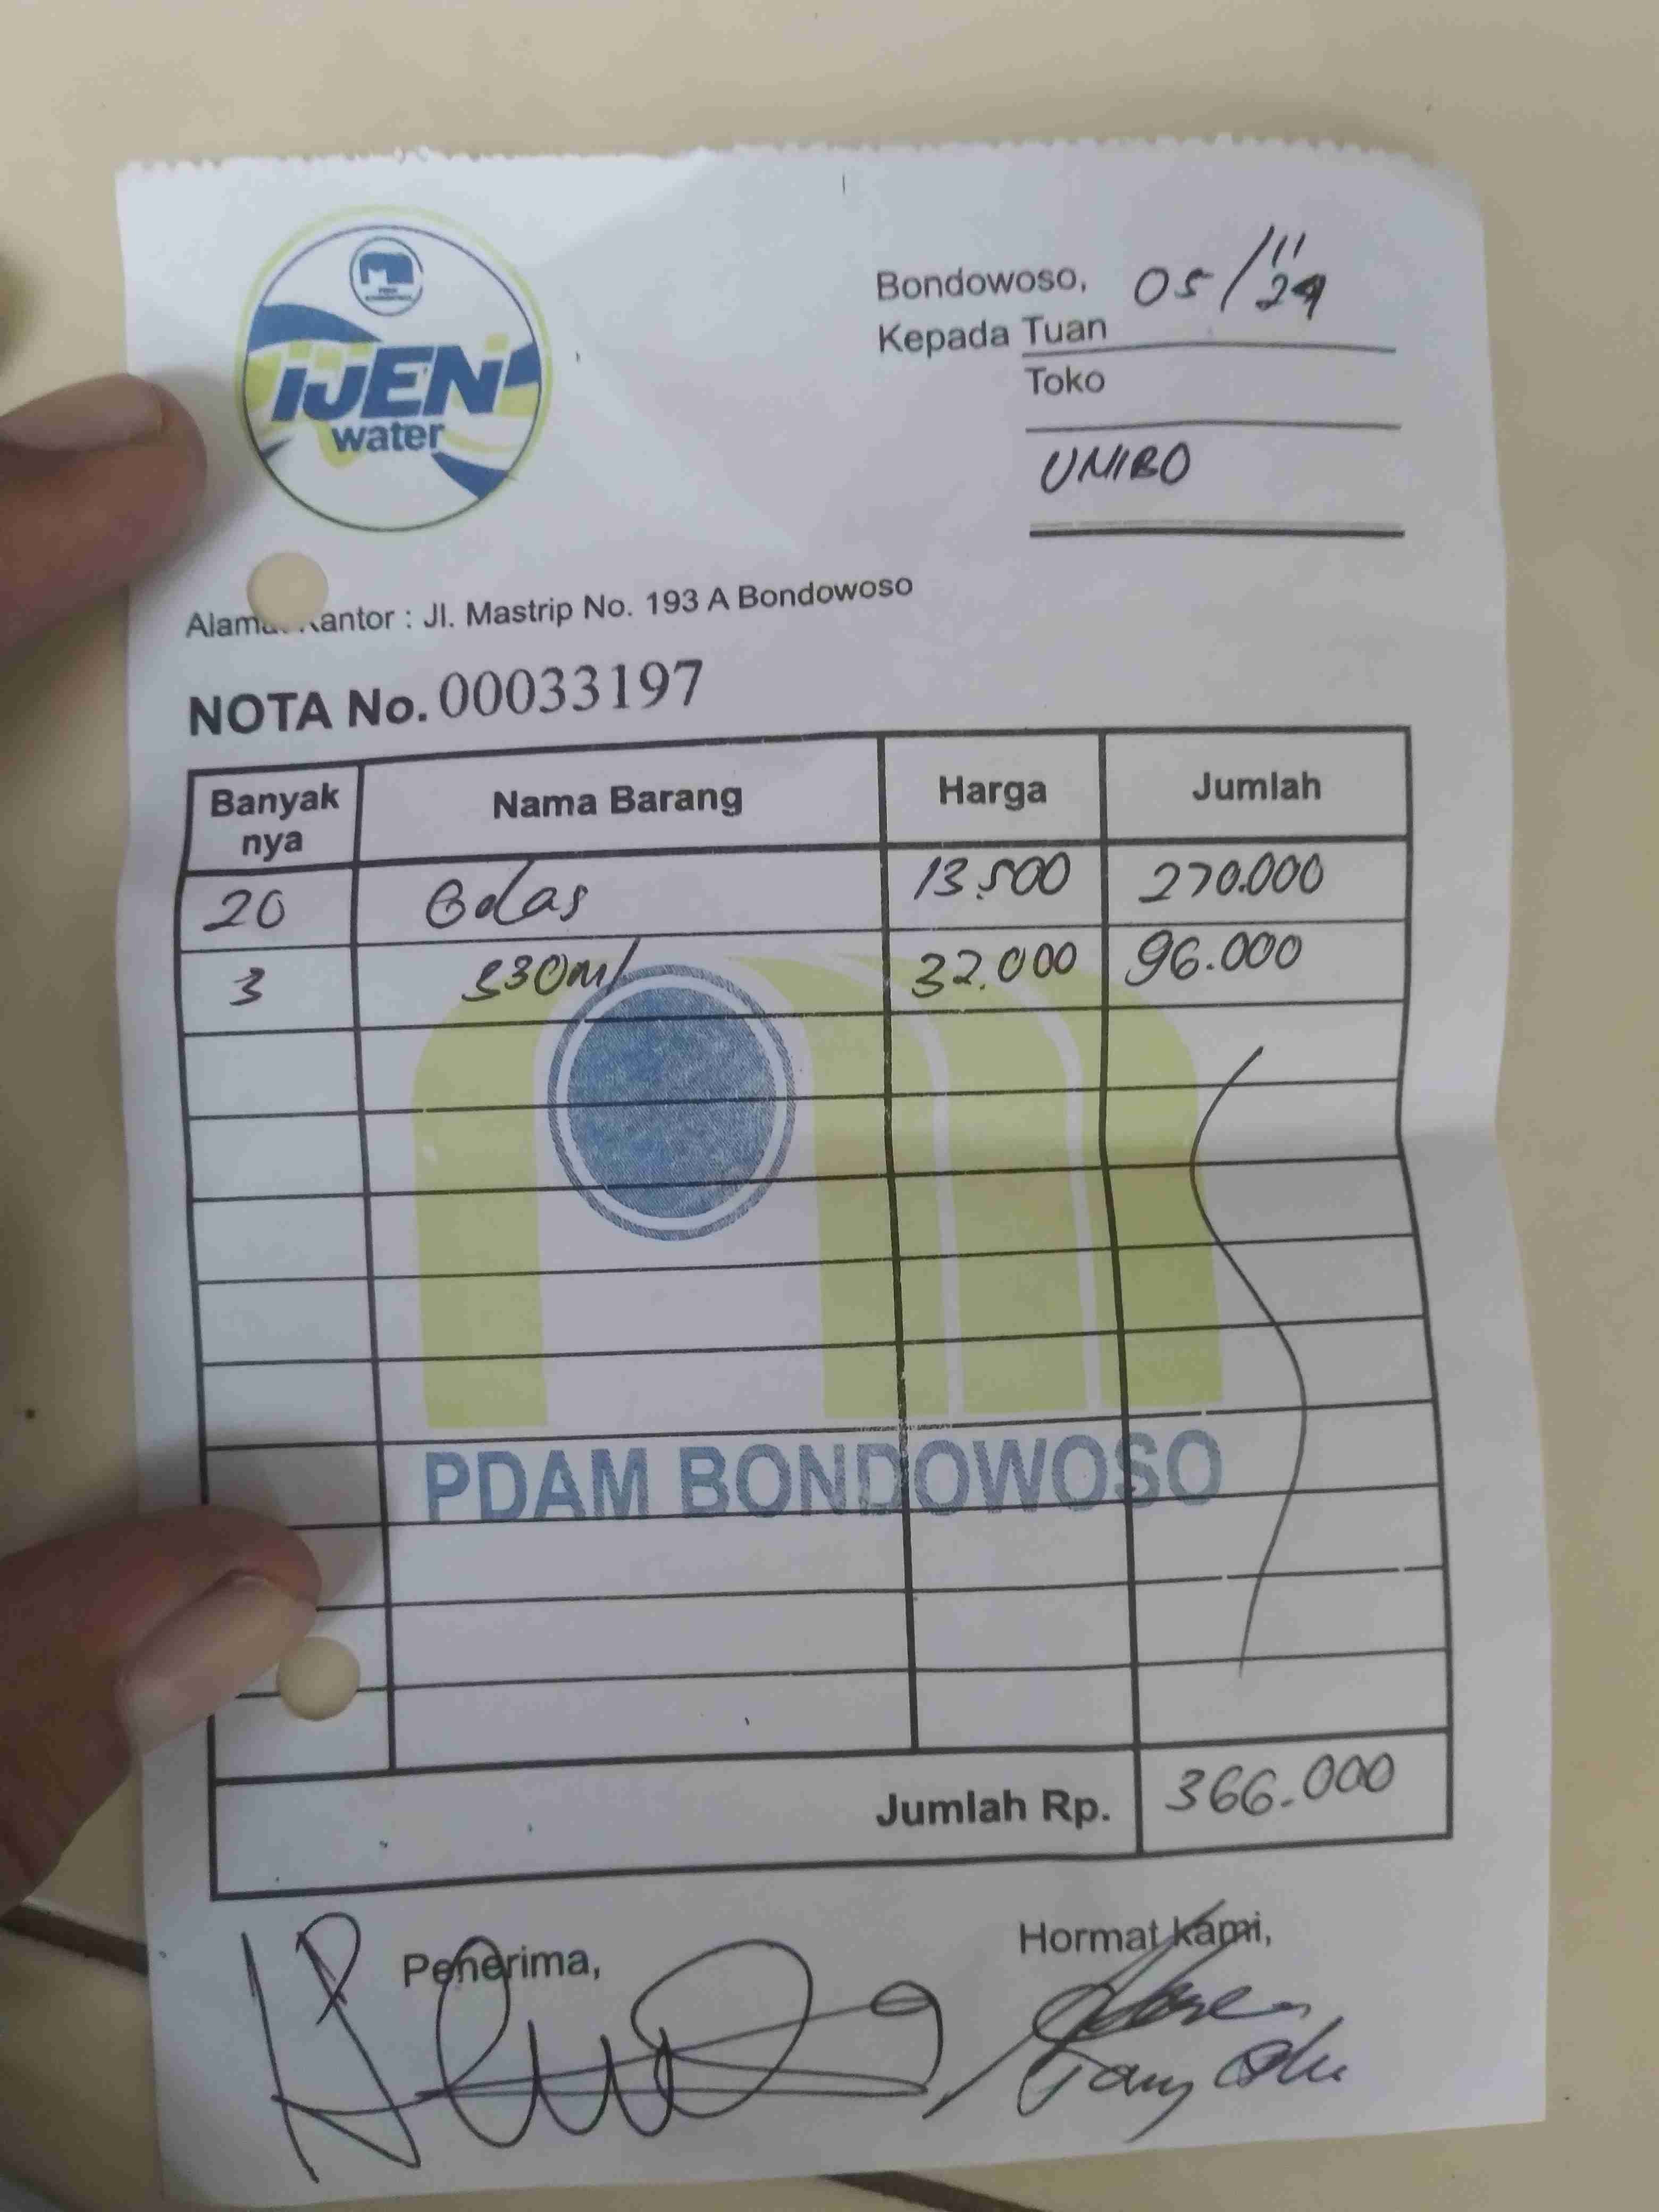 IJEN
water
Bondowoso, 05/11/24
Kepada Tuan
Toko
UNIBO
Kantor : Jl. Mastrip No. 193 A Bondowoso
NOTA No. 00033197
Banyak nya Nama Barang Harga Jumlah
20 Gelas 13.500 270.000
3 330ml 32.000 96.000
PDAM BONDOWOSO
Jumlah Rp. 366.000
Penerima, Hormat kami,